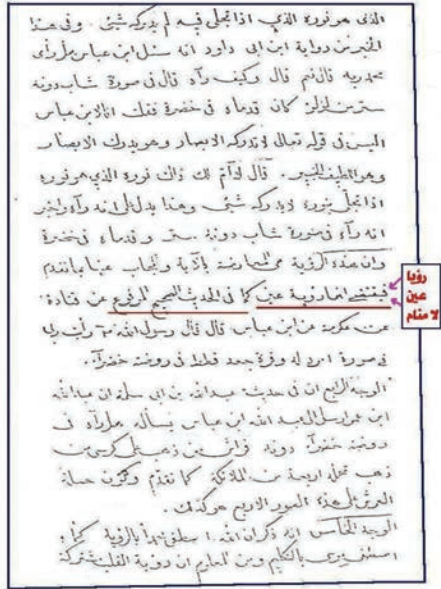 الذي هو نوره الذي اذا تجلى فيه لم يدركه شئ وفي هذا
الخبر من رواية ابن ابي داود انه سئل ابن عباس هل رأى
محمد ربه قال نعم قال وكيف رآه قال في صورة شاب دونه
ستر من لؤلؤ كان قدماه في خضرة فقلت انا لابن عباس
اليس في قوله تعالى لا تدركه الابصار وهو يدرك الابصار
وهو اللطيف الخبير . قال لا أم لك ذاك نوره الذي هو نوره
اذا تجلى بنوره لا يدركه شئ وهذا يدل على انه رآه واخبر
انه رآه في صورة شاب دونه ستر وقدماه في خضرة
وان هذه الرؤية هي المعارضة بالآية والجواب عنها بما تقدم
فيقتضي انها رؤية عين كما في الحديث الصحيح المرفوع عن قتادة
عن عكرمة عن ابن عباس قال قال رسول الله رأيت ربي
في صورة امرد له وفرة جعد قطط في روضة خضراء .
الوجه الرابع ان في حديث عبد الله بن ابي سلمة ان عبد الله
ابن عمر ارسل الى عبد الله ابن عباس يسأله هل رآه في
روضة خضرآء دونه فراش من ذهب على كرسي من
ذهب تحمله اربعة من الملائكة كما تقدم وكون حملة
العرش على هذه الصور الاربع هو كذلك .
الوجه الخامس انه ذكر ان الله اصطفى محمدا بالرؤية كما
اصطفى موسى بالتكليم ومن المعلوم ان رؤية القلب مشتركة
رؤيا
عين
لا منام